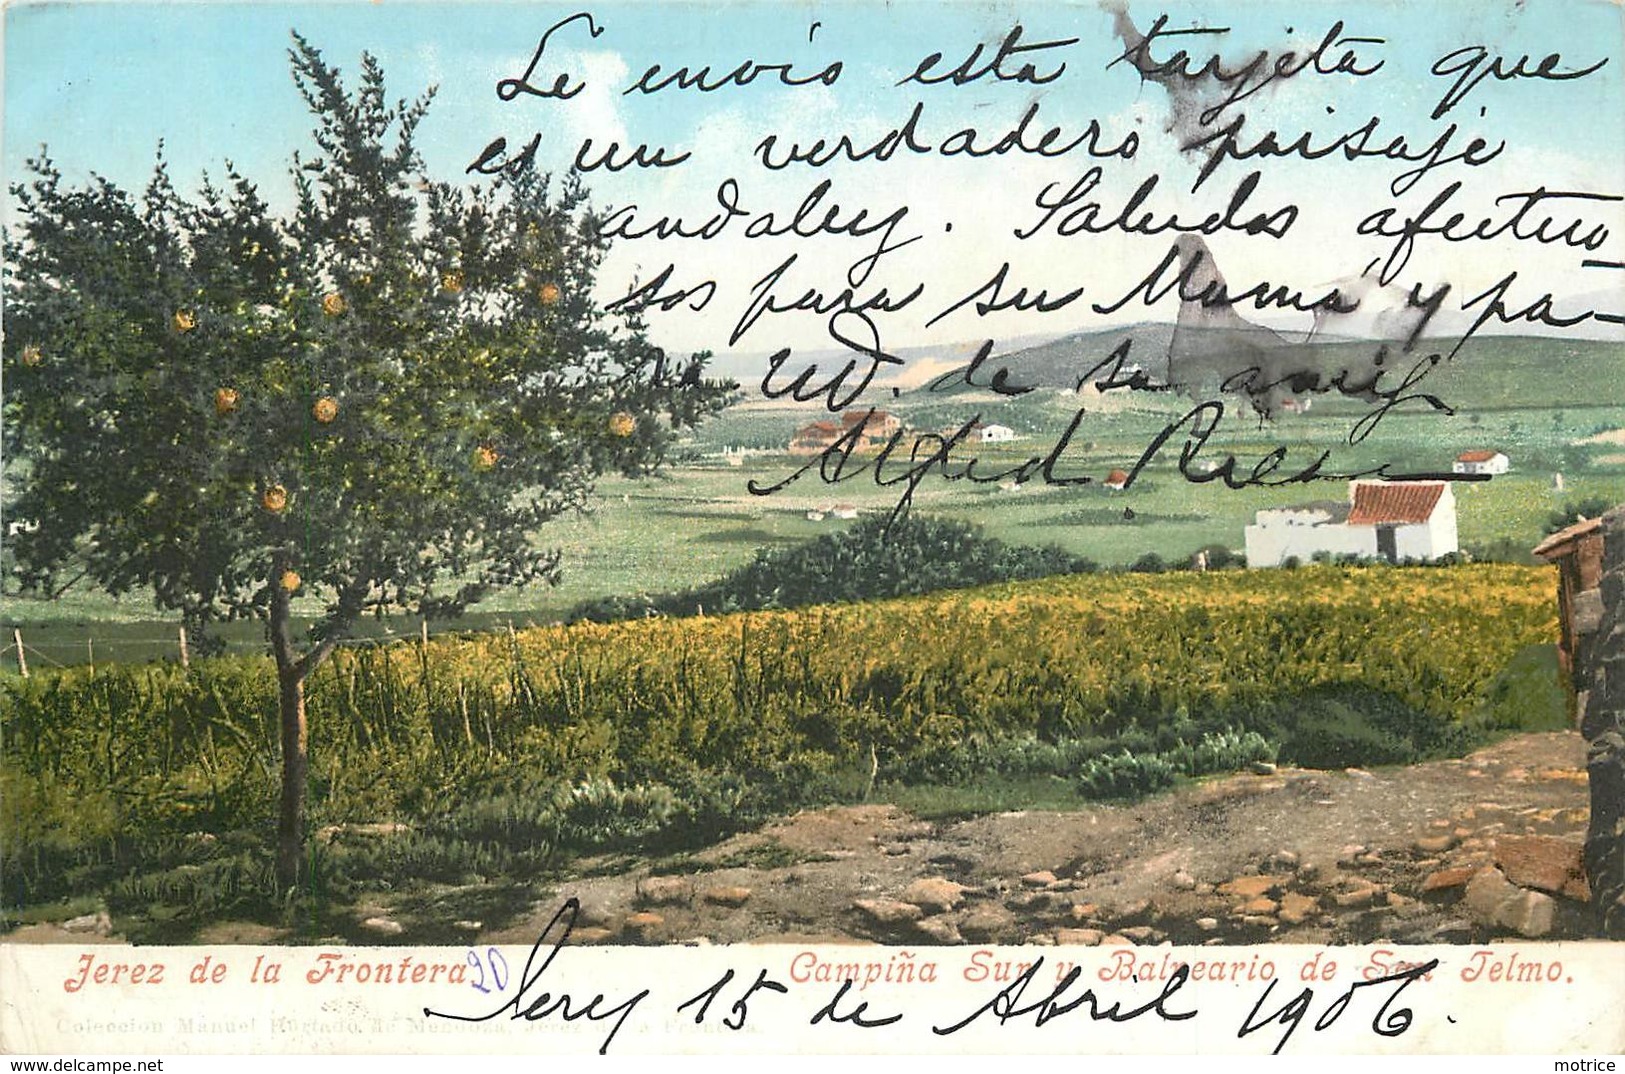 Le envio esta tarjeta que
es un verdadero paisaje
andaluz. Saludos afectuo-
sos para su Mamá y pa-
ra Ud. de su amig
Alfred
Jerez de la Frontera
20
Campiña Sur y Balneario de San Telmo.
Jerez 15 de Abril 1906.
Coleccion Manuel Hurtado de Mendoza, Jerez de la Frontera.
motrice